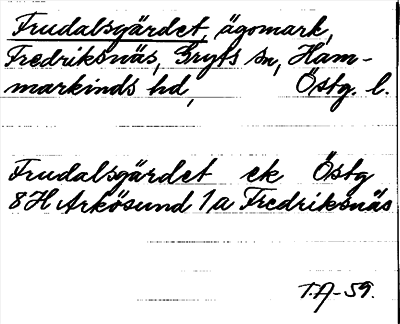 Frudalsgärdet, ägomark,
Fredriksnäs, Gryts sn, Ham-
markinds hd, Östg. l.
Frudalsgärdet ek Östg
8H Arkösund 1a Fredriksnäs
T.A-59.